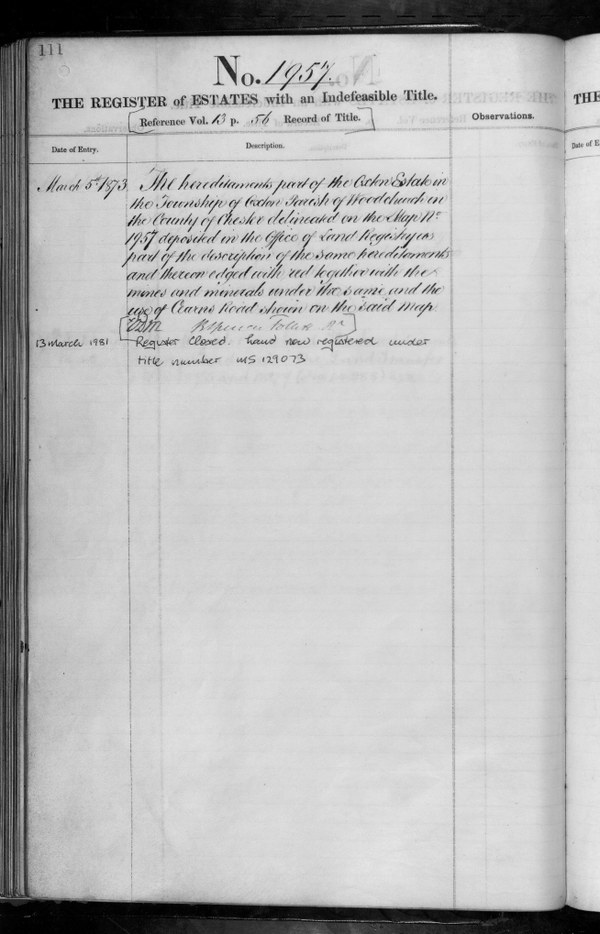 111
No. 1957.
THE REGISTER of ESTATES with an Indefeasible Title.
Reference Vol. 13 p. 56 Record of Title.
Observations.
Date of Entry.
Description.
March 5th 1873
The hereditaments part of the Oxton Estate in
the Township of Oxton Parish of Woodchurch in
the County of Chester delineated on the Map No
1957 deposited in the Office of Land Registry as
part of the description of the same hereditaments
and thereon edged with red together with the
mines and minerals under the same and the
use of Road shown on the said map
13 March 1981
Register Closed. Land now registered under
title number MS 129073
THE
Date of E